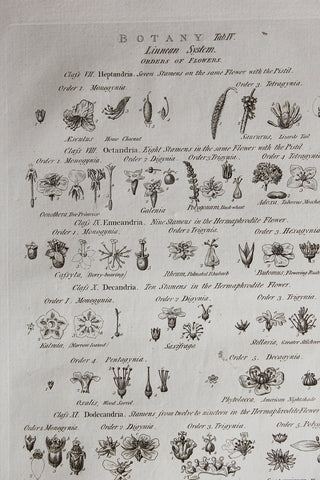 BOTANY Tab. IV.
Linnean System.
ORDERS OF FLOWERS.
Class VII. Heptandria. Seven Stamens on the same Flower with the Pistil.
Order 1. Monogynia Order 3. Tetragynia
Æsculus Horse Chesnut Saururus, Lizards Tail
Class VIII. Octandria. Eight Stamens in the same Flower with the Pistil
Order 1. Monogynia. Order 2 Digynia Order 3 Trigynia Order 4 Tetragynia
Oenothera Tree Primrose Galenia Polygonum, Buckwheat Adoxa, Tuberous
Class IX. Enneandria. Nine Stamens in the Hermaphrodite Flower.
Order 1. Monogynia. Order 2 Trigynia. Order 3. Hexagynia
Cassyta, (Berry-bearing) Rheum, Palmated Rhubarb Butomus, Flowering Rush
Class X. Decandria. Ten Stamens in the Hermaphrodite Flower.
Order 1. Monogynia. Order 2 Digynia Order 3. Trigynia.
Kalmia, leaved) Saxifraga Stellaria, Stitchwort
Order 4. Pentagynia. Order 5. Decagynia.
Oxalis Wood Sorrel Phytolacca, American Nightshade
Class XI. Dodecandria. Stamens from twelve to nineteen in the Hermaphrodite Flower
Order 1. Monogynia Order 2. Digynia Order 3. Trigynia. Order 5.